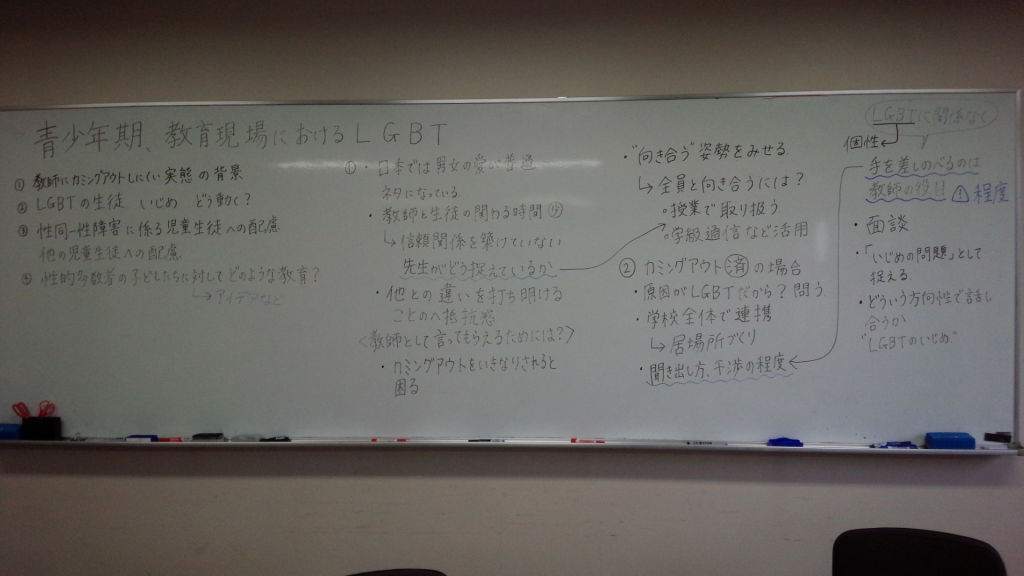 青少年期、教育現場におけるLGBT
① 教師にカミングアウトしにくい実態の背景
② LGBTの生徒 いじめ どう動く？
③ 性同一性障害に係る児童生徒への配慮
他の児童生徒への配慮
④ 性的多数者の子どもたちに対してどのような教育？
↳アイデアなど
①・日本では男女の愛が普通
ネタになっている
・教師と生徒の関わる時間 少
↳信頼関係を築けていない
先生がどう捉えているか
・他との違いを打ち明ける
ことのへ抵抗感
<教師として言ってもらえるためには？>
・カミングアウトをいきなりされると
困る
・"向き合う"姿勢をみせる
↳全員と向き合うには？
○授業で取り扱う
○学級通信など活用
② カミングアウト済の場合
・原因がLGBTだから？問う
・学校全体で連携
↳居場所づくり
・聞き出し方、干渉の程度
LGBTに関係なく
個性←
手を差しのべるのは
教師の役目 ⚠程度
・面談
・「いじめの問題」として
捉える
・どういう方向性で話し
合うか
"LGBTのいじめ"